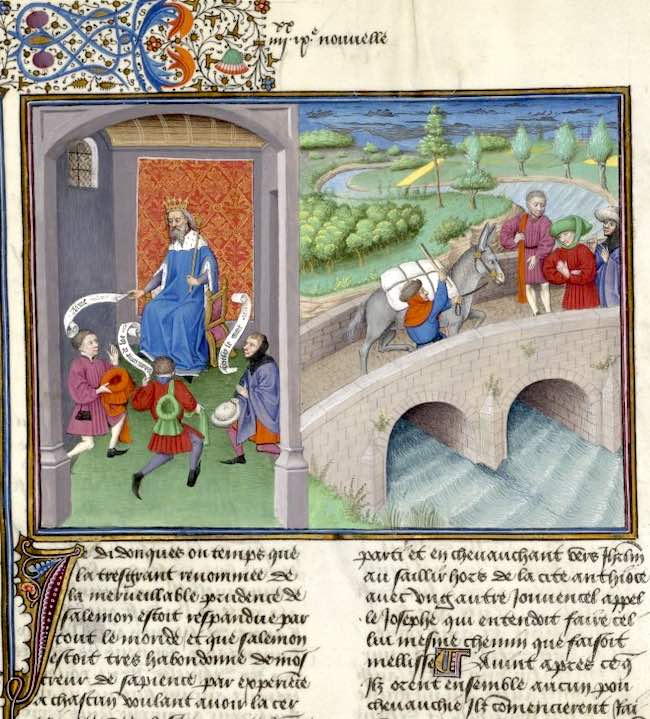 nouuelle
Je di donques ou temps que
la tresgrant renommee de
la merueillable prudence de
salemon estoit respandue par
tout le monde et que salemon
estoit tres habondonne de mōs
treur de sapience par experiēce
a chascun voulant avoir la cer
parti et en cheuauchant vers ihrlm
au saillir hors de la cite anthioce
avec vng autre Jouuencel appel
le Josephe qui entendoit faire cel
lui mesme chemin que faisoit
mellisse Auint apres ce q̄
ilz orent ensemble aucun pou
cheuauche ilz comencierent Jai